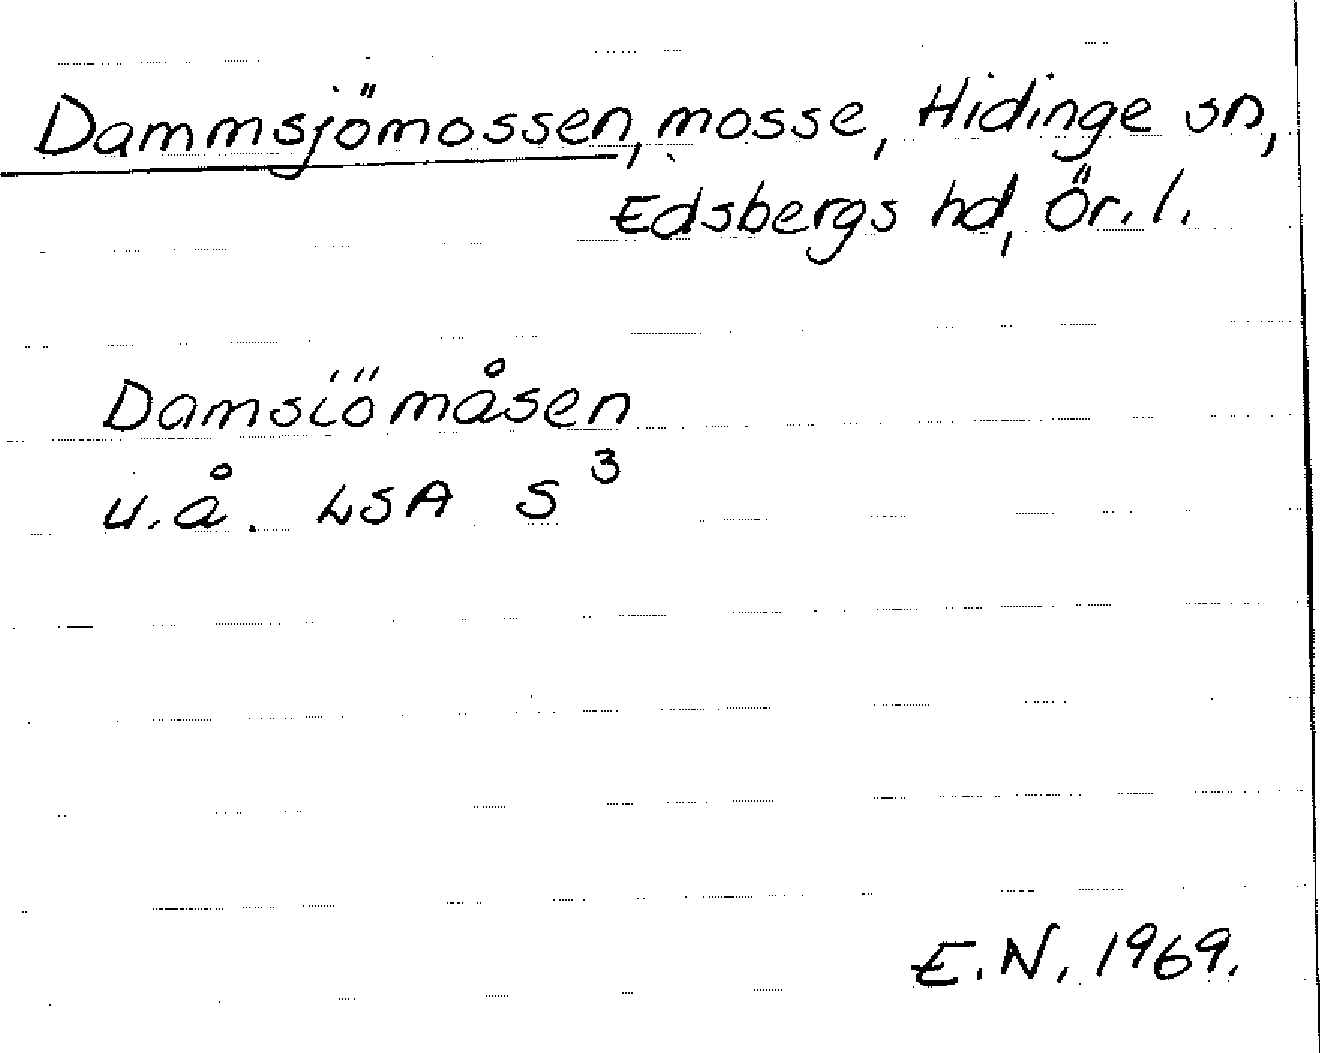 Dammsjömossen, mosse, Hidinge sn,
Edsbergs hd, Ör. l.
Damsiömåsen
u.å. LSA S3
E.N. 1969.